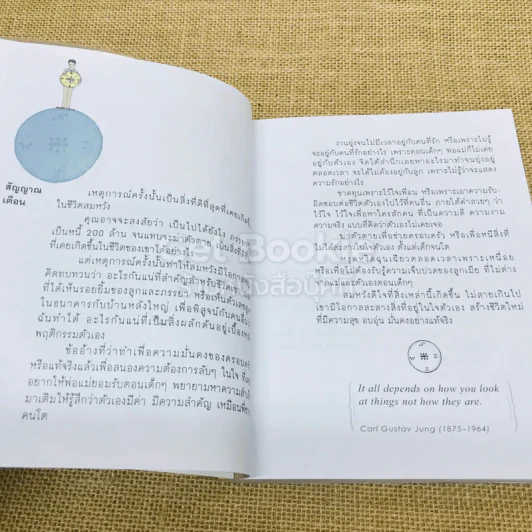 สัญญาณ
เตือน
เหตุการณ์ครั้งนั้นเป็นสิ่งที่ดีที่สุดที่เคยเกิดขึ้น
ในชีวิตสมหวัง
คุณอาจจะสงสัยว่า เป็นไปได้ยังไง
เป็นหนี้ 200 ล้าน จนแทบจะฆ่าตัวตาย เป็นสิ่งที่ดี
ที่เคยเกิดขึ้นในชีวิตของเขาได้อย่างไร
แต่เหตุการณ์ครั้งนั้นทำให้สมหวังมีโอกาส
คิดทบทวนว่า อะไรกันแน่ที่สำคัญสำหรับชีวิต
ที่ได้เห็นรอยยิ้มของลูกและภรรยา หรือเห็นตัวเลข
ในธนาคารกับบ้านหลังใหญ่ เพื่อพิสูจน์กับคนอื่น
ฉันทำได้ อะไรกันแน่ที่เป็นสิ่งผลักดันอยู่เบื้องหลัง
พฤติกรรมตัวเอง
ข้ออ้างที่ว่าทำเพื่อความมั่นคงของครอบครัว
หรือแท้จริงแล้วเพื่อสนองความต้องการลับๆ ในใจ ที่
อยากให้พ่อแม่ยอมรับตอนเด็กๆ พยายามหาความสำเร็จ
มาเติมให้รู้สึกว่าตัวเองมีค่า มีความสำคัญ เหมือนพี่ๆ
คนโต
งานยุ่งจนไม่มีเวลาอยู่กับคนที่รัก หรือเพราะไม่รู้
จะอยู่กับคนที่รักอย่างไร เพราะตอนเด็กๆ พ่อแม่ก็ไม่เคย
อยู่กับตัวเอง จิตใต้สำนึกเลยหาอะไรมาทำจนยุ่งอยู่
ตลอดเวลา จะได้ไม่ต้องอยู่กับลูก เพราะไม่รู้ว่าจะแสดง
ความรักอย่างไร
ขาดทุนเพราะไว้ใจเพื่อน หรือเพราะเอาความรับ
ผิดชอบต่อชีวิตตัวเองไปไว้ที่คนอื่น ภายใต้คำสวยๆ ว่า
ไว้ใจ ไว้ใจเพื่อหาใครสักคน ที่เป็นความดี ความงาม
ความจริง แบบที่คิดว่าตัวเองไม่เคยเจอ
ฆ่าตัวตายเพื่อช่วยครอบครัว หรือเพื่อหนีสิ่งที่
ไม่ได้สะสางในใจตัวเอง ตั้งแต่เด็กจนโต
หงุดหงิดฉุนเฉียวตลอดเวลาเพราะเหนื่อย
หรือเพื่อไม่ต้องรับรู้ความเจ็บปวดของลูกเมีย ที่ไม่ต่าง
จากแม่และตัวเองตอนเด็กๆ
สมหวังดีใจที่สิ่งเหล่านี้เกิดขึ้น ไม่ตายเกินไป
เขามีโอกาสสะสางสิ่งที่อยู่ในใจตัวเอง สร้างชีวิตใหม่
ที่มีความสุข อบอุ่น มั่นคงอย่างแท้จริง
It all depends on how you look
at things not how they are.
Carl Gustav Jung (1875-1964)